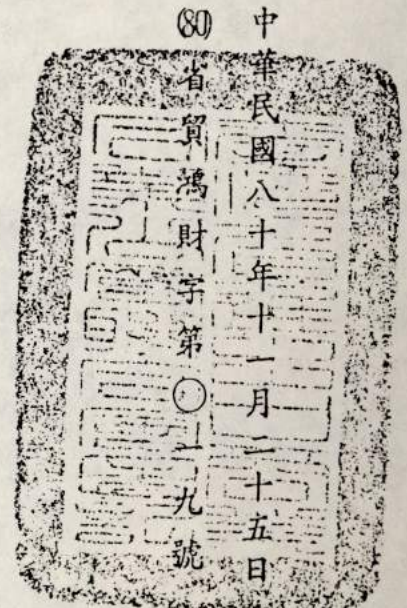 中華民國八十年十一月二十五日
(80)省貿鴻財字第〇一九號